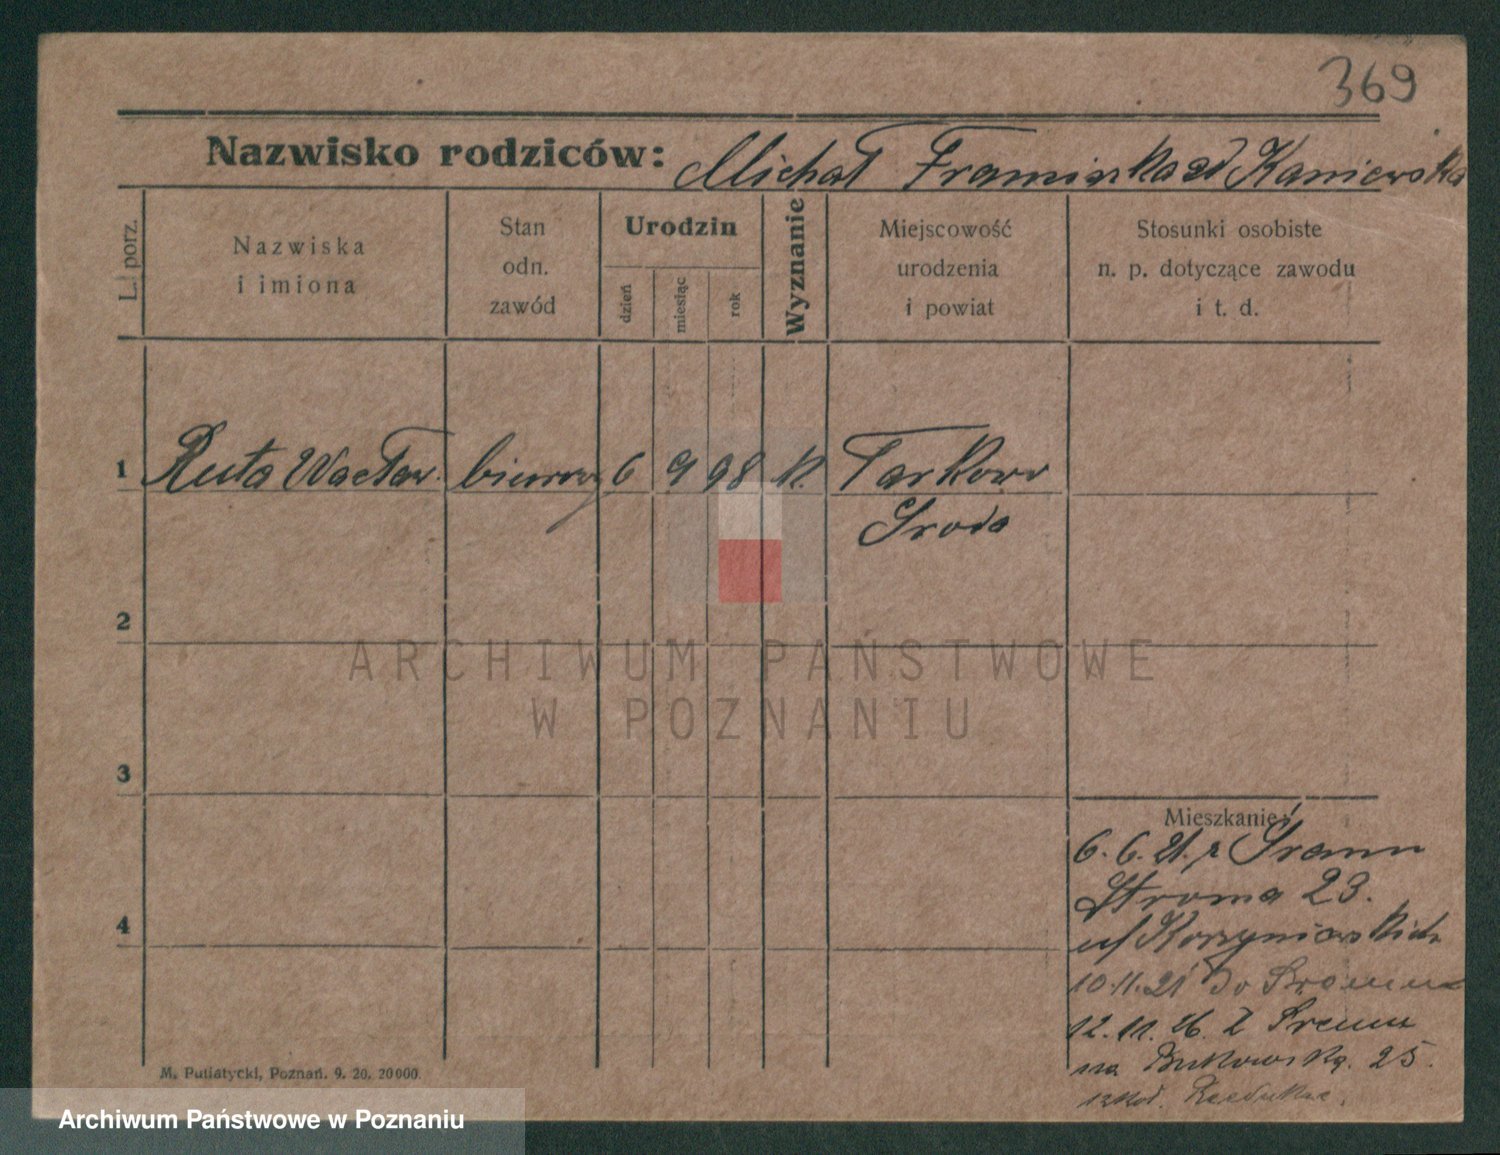 369
Nazwisko rodziców: Michał Franciszka zd Kaniewska
L. porz.
Nazwiska
i imiona
Stan
odn.
zawód
Urodzin
dzień
miesiąc
rok
Wyznanie
Miejscowość
urodzenia
i powiat
Stosunki osobiste
n. p. dotyczące zawodu
i t. d.
1 Ruta Wacław. biurowy 6 9 98 k. Tarkowo
Środa
2
ARCHIWUM PAŃSTWOWE
W POZNANIU
3
Mieszkanie:
6. 6. 21. z Śremu
Stroma 23.
4
10.11.21 do Śremu
12. 11. 26. z Śremu
na Bukowską. 25.
M. Putiatycki, Poznań. 9. 20. 20000.
Archiwum Państwowe w Poznaniu